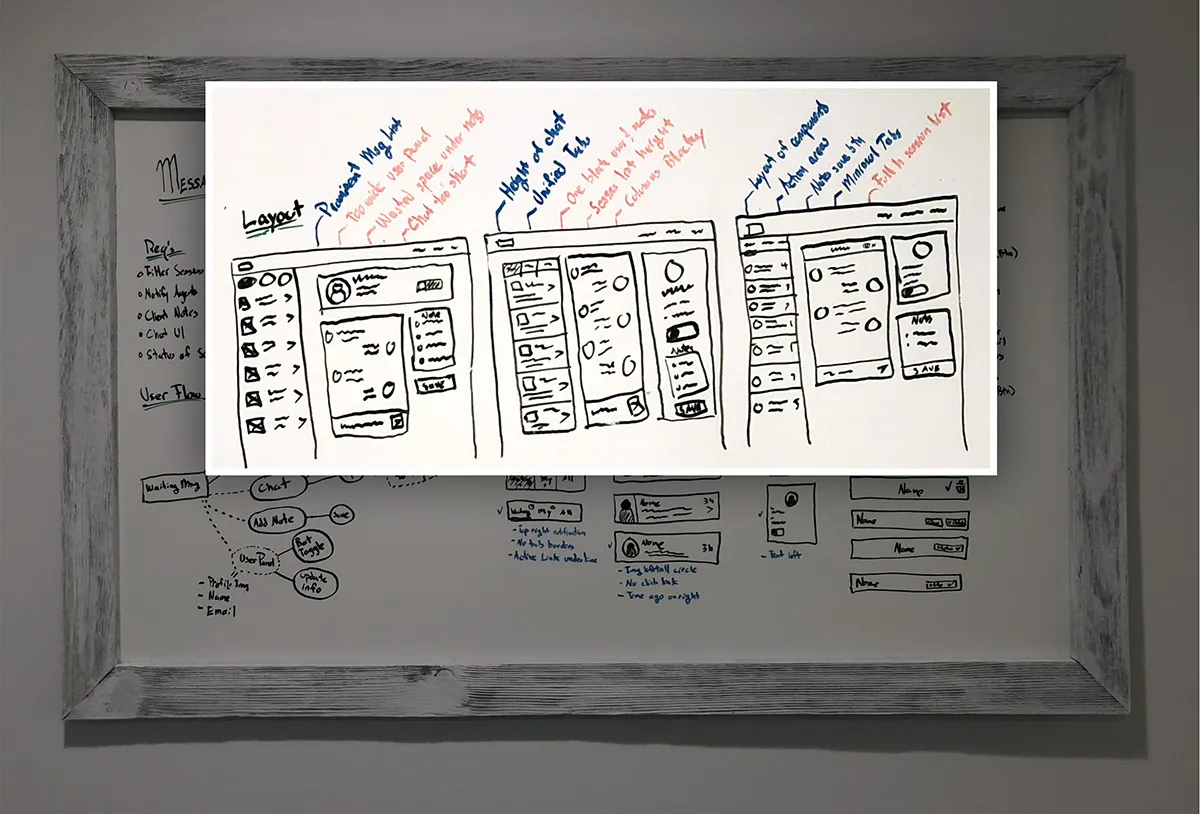 Layout
Prominent Msg List
Too wide user panel
Wasted space under notes
Chat too short
Height of chat
Unified Tabs
One block user/notes
Sesses lost height
Columns Blocky
Layout of components
Action areas
Note save btn
Minimal Tabs
Full h session list
Note
SAVE
Notes
SAVE
Notes
SAVE
Messa
Req's
Filter Session
Notify Agents
Chat Notes
Chat UI
Status of S
User Flow
Waiting Msg
Chat
Add Note
Save
User Panel
Bot Toggle
Update info
- Profile Img
- Name
- Email
Waiting My All
- Top right notification
- No tab borders
- Active Link underline
Name 3h
Name 3h
- Img left all circle
- No click link
- Time ago on right
- Text left
Name
Name
Name
Name